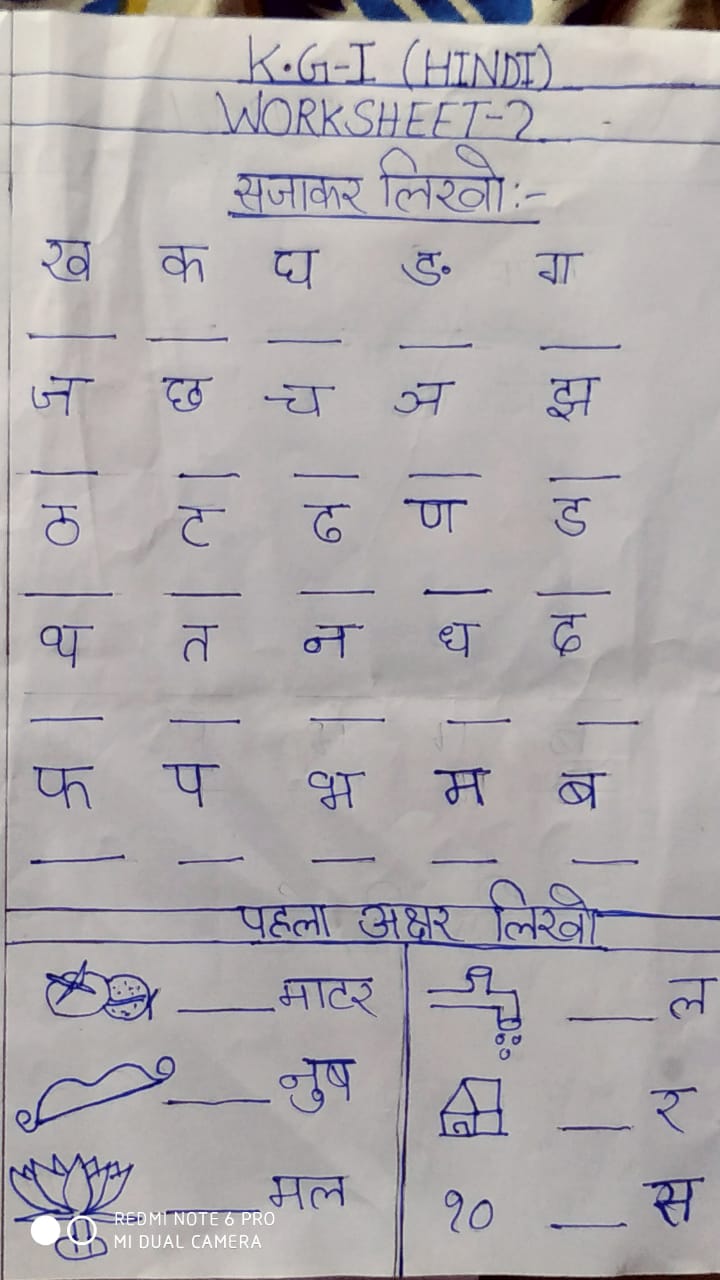 K.G-I (HINDI)
WORKSHEET-2
सजाकर लिखो:-
ख क घ ङ ग
ज छ च ञ झ
ठ ट ढ ण ड
थ त न ध द
फ प भ म ब
पहला अक्षर लिखो
___माटर ___ल
___नुष ___र
___मल १० ___स
REDMI NOTE 6 PRO
MI DUAL CAMERA